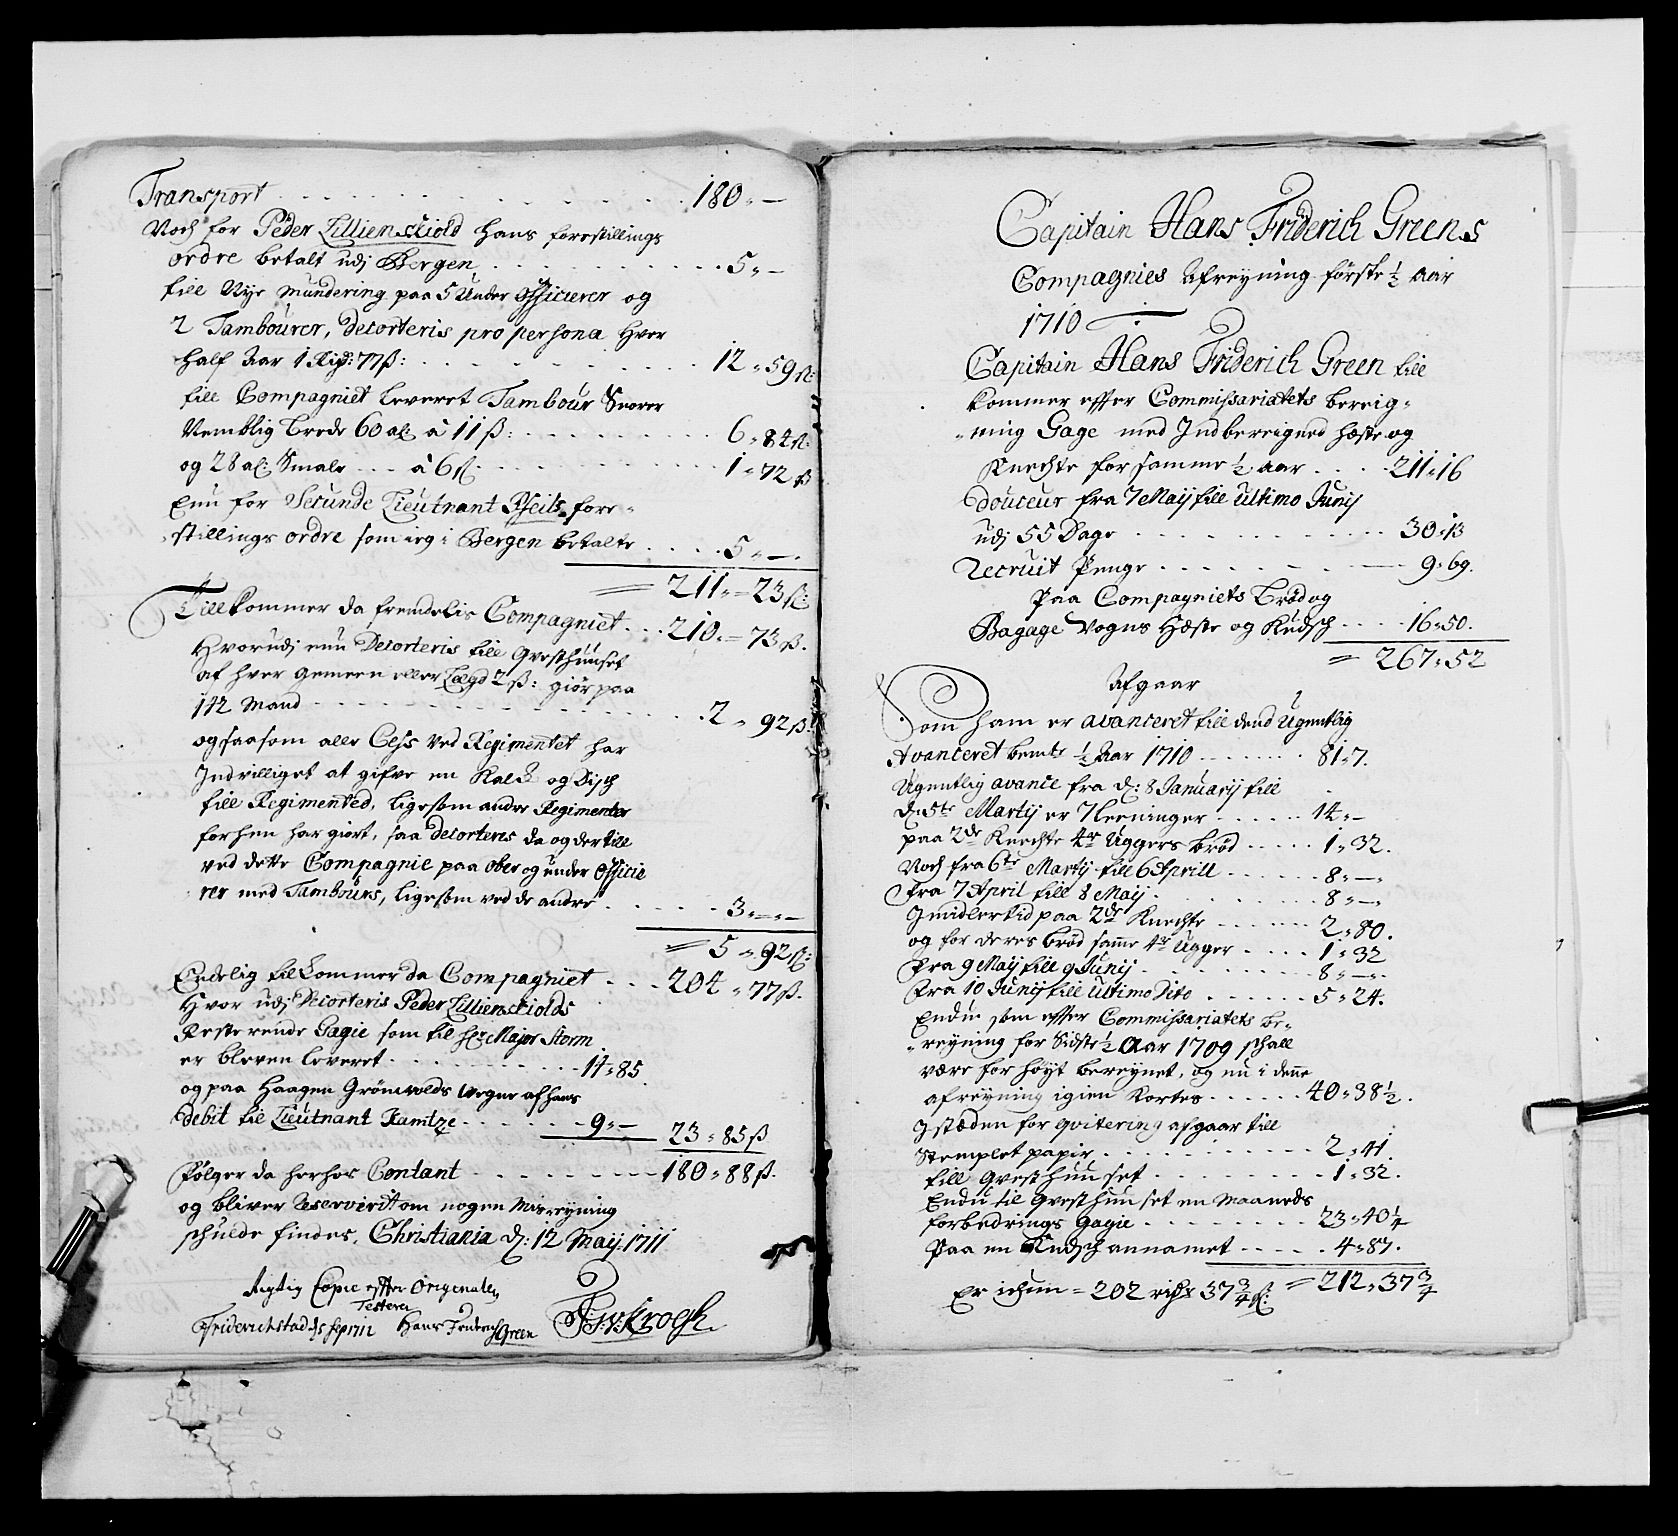 Transport . . . . . 180 „ —
Noch for Peder Lillienskiold hans forestillings
ordre betalt udj Bergen . . . . . 5 „ —
till Nye mundering paa 5 Under Officierer og
2 Tambourer, decorteris pro persona hver
half Aar 1 Rixd: 77 ß: . . . . . 12 „ 59 ß:
till Compagniet leveret Tambour Snorer
Nemblig brede 60 al: â 11 ß: . . . . . 6 „ 84 ß:
og 28 al: Smale . . . â 6 ß . . . . . 1 „ 72 ß
Enu for Secunde Lieutnant Pseils fore-
stillings ordre som ieg i Bergen betalte . . . . . 5 „ —
= 211 „ 23 ß:
Tillkommer da fremdelis Compagniet . . . 210 „ 73 ß.
Hvorudj enu Decorteris till Qvesthuuset
af hver gemeen eller Lægd 2 ß: giör paa
142 Mand . . . . . 2 „ 92 ß:
og saasom alle Cess ved Regimentet har
Indvilliget at gifve en Kalck og Disch
till Regimented, ligesom andre Regimenter
forhen har giort, saa decorteris da og dertill
ved dette Compagnie paa ober og under Officie
rer med Tambours, ligesom ved de andre . . . . . 3 „ — „ —
= 5 „ 92 ß:
Endelig tilkommer da Compagniet . . . 204 „ 77 ß.
Hvor udj Decorteris Peder Lillienskiolds
Resterende Gagie som til Hr: Major Storm
er bleven leveret . . . . . 14 „ 85
og paa Haagen Grönvolds vegne af hans
debit til Lieutnant Kamtze . . . . . 9 „ — 23 „ 85 ß
følger da herhos Contant . . . . . 180 „ 88 ß.
og bliver Reserverit om nogen Misreyning
schulde findes, Christiania d: 12 Maij 1711
Rigtig Copie effter Originalen
Testerer
Friderichstad d 5 Sep 1711 Hans Fridrich Green F: v: Krogh
Capitain Hans Friderich Greens
Compagnies Afreyning förste ½ Aar
1710
Capitain Hans Friderich Green till
kommer effter Commissariatets bereig-
ning Gage med Indbereigned hæste og
Knechte for samme ½ aar . . . . 211 „ 16
Douceur fra 7 Maij till ultimo Junij
udj 55 Dage . . . . . 30 „ 13
Recruit Penge . . . . . 9 „ 69.
Paa Compagniets bröd og
Bagage Vogns Hæste og Kudsch . . . . 16 „ 50.
= 267 „ 52
Afgaar
Som ham er avanceret till dend Ugentlig
Avanceret bemte ½ Aar 1710 . . . . . 81 „ 7.
Ugentlig avance fra d: 8 Januarij till
d: 5te Martij er 7 Leeninger . . . . . 14 „ —
paa 2de Knechte 4er Uggers bröd . . . . . 1 „ 32.
Noch fra 6te Martij till 6 Aprill . . . . . 8 „ — „
Fra 7 April till 8 Maij . . . . . 8 „ — „
Imidlertid paa 2de Knechte . . . . . 2 „ 80.
og for deres bröd samme 4er Ugger . . . . 1 „ 32
Fra 9 Maij till 9 Junij . . . . . 8 „ — „
Fra 10 Junij till ultimo Dito . . . . . 5 „ 24.
Endu som effter Commissariatets be-
reyning for Sidste ½ Aar 1709 schall
være for höyt bereynet, og nu i denne
afreyning igien Kortes . . . . . 40 „ 38½.
I stæden for qvitering afgaar till
Stemplet papir . . . . . 2 „ 41.
till Qvesthuuset . . . . . 1 „ 32.
Endu til Qvesthuuset en Maaneds
forbedrings Gagie . . . . . 23 „ 40¼
Paa en Kudsch annamet . . . . . 4 „ 87.
= 212 „ 37¾
Er ichun = 202 richsdr 37¾ ß: